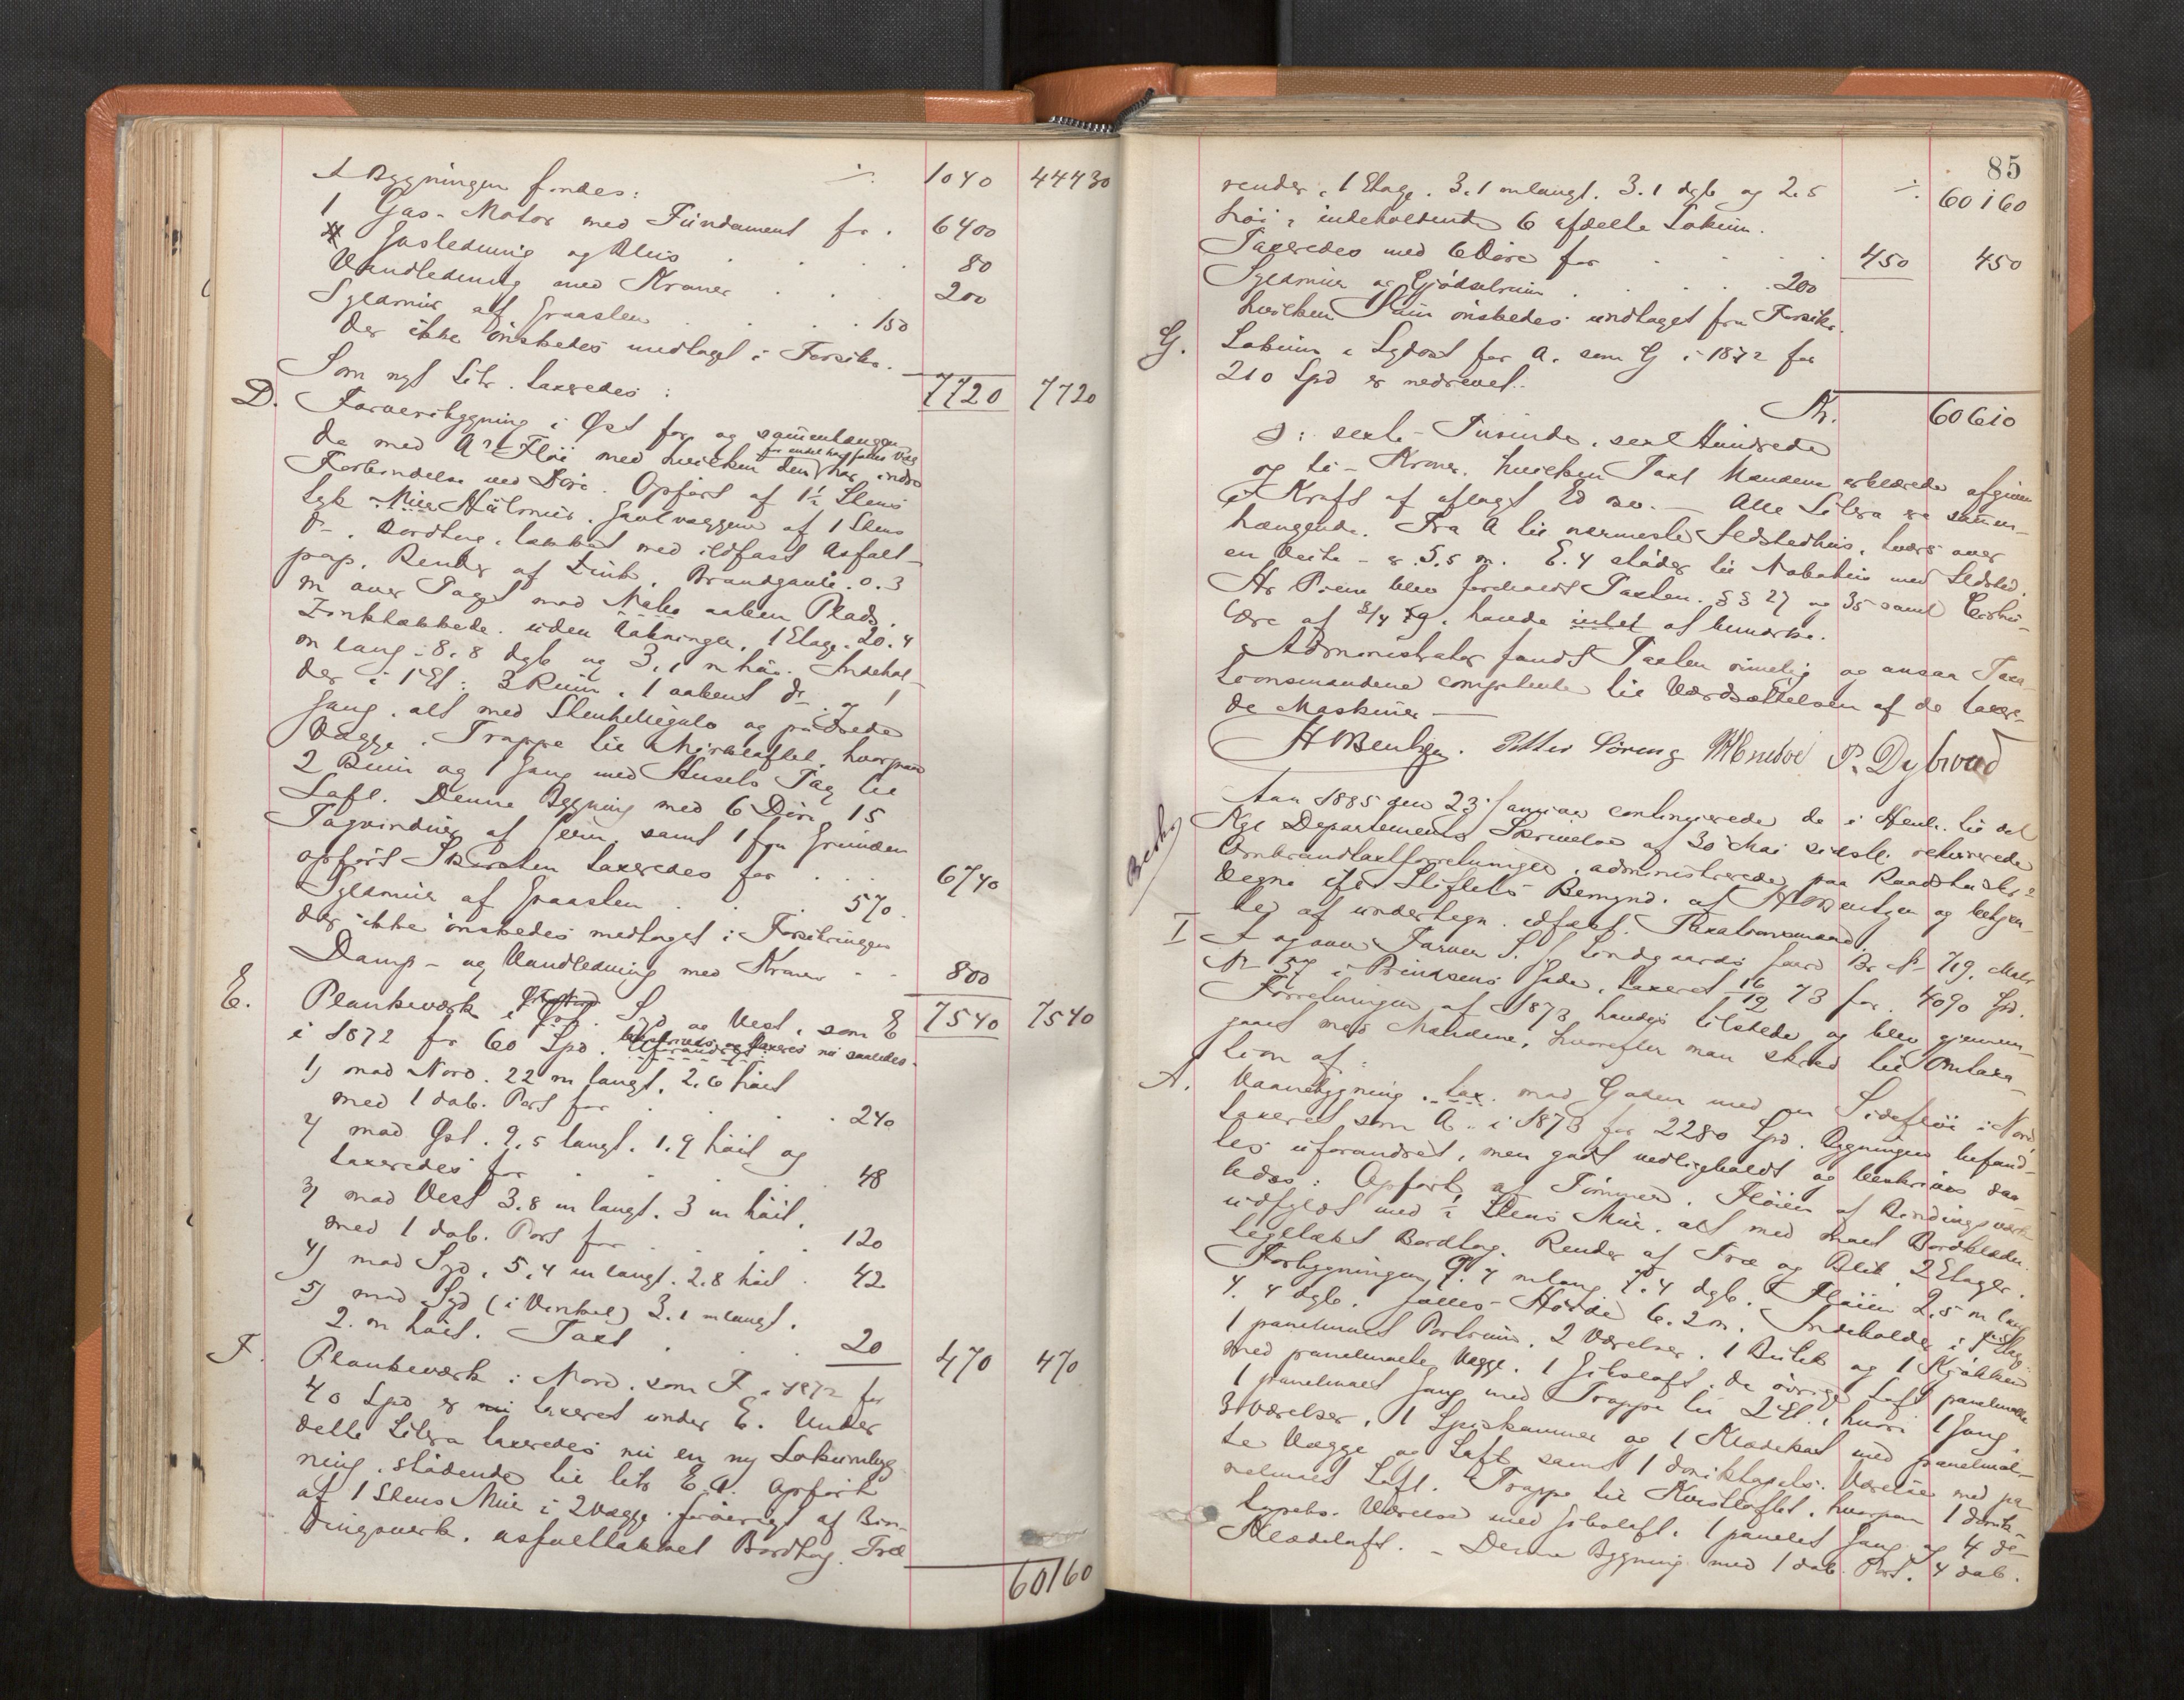 I Bygningen findes: ./. 1040 44430
1 Gas-Motor med Fundament for . 6400
Gasledning og Blus . . . . 80
Vandledning med Kraner . . . 200
Syldmur af Graasten . . . . 150
der ikke ønskedes medtaget i Forsikr.
7720 7720
Som nyt Litr. taxeredes:
D. Farveribygning i Øst for og sammenhængen-
de med A's Fløi med hvilken den har indre
Forbindelse ved Døre. Opført af 1½ Stens
tyk Mur Hulmur. Gavlvæggene af 1 Stens
do. Bordtag, tækket med ildfast Asfalt-
pap. Render af Zink. Brandgavle 0.3
m over Taget mod Nabo aaben Plads.
Zinktækkede uden Aabninger, 1 Etage. 20.4
m lang. 8.8 dyb og 3.1 m høi. Indehol-
der i 1 Et: 3 Rum, 1 aabent do. og 1
Gang, alt med Stenhellegulv og pudsede
Vægge. Trappe til Mørkeloftet, hvorpaa
2 Rum og 1 Gang med Husets Tag til
Loft. Denne Bygning med 6 Døre 15
Tagvinduer af Jern, samt 1 fra Grunden
opført Skorsten taxeredes for . . . 6740
Syldmur af Graasten . . . 570.
der ikke ønskedes medtaget i Forsikringen
Damp- og Vandledning med Kraner . . 800
7540 7540
E. Plankeværk i Syd og Vest, som E
i 1872 for 60 Spd. beskrives og taxeres nu saaledes.
1) mod Nord. 22 m langt, 2.6 høit
med 1 dob. Port for . . . . 240
2) mod Øst. 9.5 langt. 1.9 høit og
taxeredes for . . . . 48
3) mod Vest 3.8 m langt. 3 m høit.
med 1 dob. Port for . . . . 120
4) mod Syd, 5.4 m langt. 2.8 høit . 42
5) mod Syd (i Vinkel) 3.1 m langt.
2. m høit. Taxt . . . 20
470 470
F. Plankeværk i Nord. som F i 1872 for
40 Spd er nu taxeret under E. Under
dette Litera taxeredes nu en ny Lokumbyg
ning, stødende til litr E. 1. Opført
af 1 Stens Mur i 2 Vægge forøvrigt af Bin-
dingsverk. asfalttækket Bordtag. Træ
60160
85
render. 1 Etage. 3.1 m langt. 3.1 dyb og 2.5 ./. 60160
høi, indeholdende 6 afdelte Lokum.
Taxeredes med 6 Døre for . . . . 450 450
Syldmur og Gjødselrum . . . . 200
hvilken Sum ønskedes undtaget fra Forsikr.
G. Lokum i Sydost for A. som G i 1872 for
210 Spd er nedrevet.
Kr. 60610
ɔ: sexti-Tusinde, sex Hundrede
og ti-Kroner. hvilken Taxt Mændene erklærede afgiven
i Kraft af aflagt Ed. — Alle Litera er sammen-
hængende. Fra A til nærmeste Ildstedhus, tvers over
en Veite - er 5.5 m. E. 4 støder til Nabohus med Ildsted.
Hr Piene blev foreholdt Taxten. §§ 27 og 35 samt Cirku-
lære af 3/4 79. havde intet at bemærke.
Administrator fandt Taxten rimelig og ansaa Taxa-
tionsmændene competente til Værdsættelsen af de taxere-
de Maskiner. —
H Bentzen. Petter Søreng P. Dybwad
Aar 1885 den 23 Januar continueredes de i Henh. til det
Kgl Departements Skrivelse af 30 Mai sidstl. rekvirerede
Ombrandtaxtforretninger, administrerede paa Raadstuskr.
Vegne efter Stiftets Bemynd. af H Bentzen og betjen-
tes af undertegn. edfæst. Taxationsmænd.
Beskr.
I I og over Farver S. Lindgaards Gaard Br. N. 719. Matr
N. 57 i Prindsens Gade, taxeret 16/12 73 for 4090 Spd.
Forretningen af 1873 havdes tilstede og blev gjennem-
gaaet med Mændene, hvorefter man skred til Omtaxa-
tion af:
A. Vaanebygning, tax. mod Gaden med en Sidefløi i Nord,
taxeret som A. i 1873 for 2280 Spd. Bygningen befand-
tes uforandret, men godt vedligeholdt og beskrives saa-
ledes: Opført af Tømmer. Fløien af Bindingsverk
udfyldt med ½ Stens Mur, alt med malt Bordklædn.
tegltækt Bordtag. Render af Træ og Blik. 2 Etager.
Forbygningen 9.4 m lang 7.4 dyb. Fløien 2.5 m lang
4.4 dyb. fælles-Høide 6.2 m. Indeholder i 1 Etage:
1 panelmalt Portrum. 2 Værelser. 1 Butik og 1 Kjøkken
med panelmalte Vægge. 1 Gibsloft. de øvrige Loft panelmalte
1 panelmalt Gang med Trappe til 2 Et., hvori 1 Gang,
3 Værelser, 1 Spiskammer og 1 Klædekot med panelmal-
te Vægge og Loft samt 1 tapets. Værelse med pa-
nelmalt Loft. Trappe til Kvistloftet, hvorpaa 1
tapets. Værelse med Gibsloft. 1 panelet Gang og 4 de
Klædeloft. – Denne Bygning med 1 dob. Port. 4 dob.